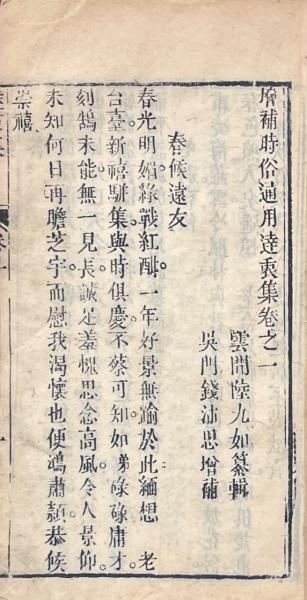 增補時俗通用達衷集卷之一
雲間陸九如纂輯
吳門錢沛思增補
春候遠友
春光明媚綠戰紅酣。一年好景無踰於此緬想 老
台臺新禧駢集與時俱慶不蔡可知如弟碌碌庸才。
刻鵠未能無一見長誠足羞愧思念高風。令人景仰。
未知何日再瞻芝宇而慰我渴懷也便鴻肅頴恭候
崇禧